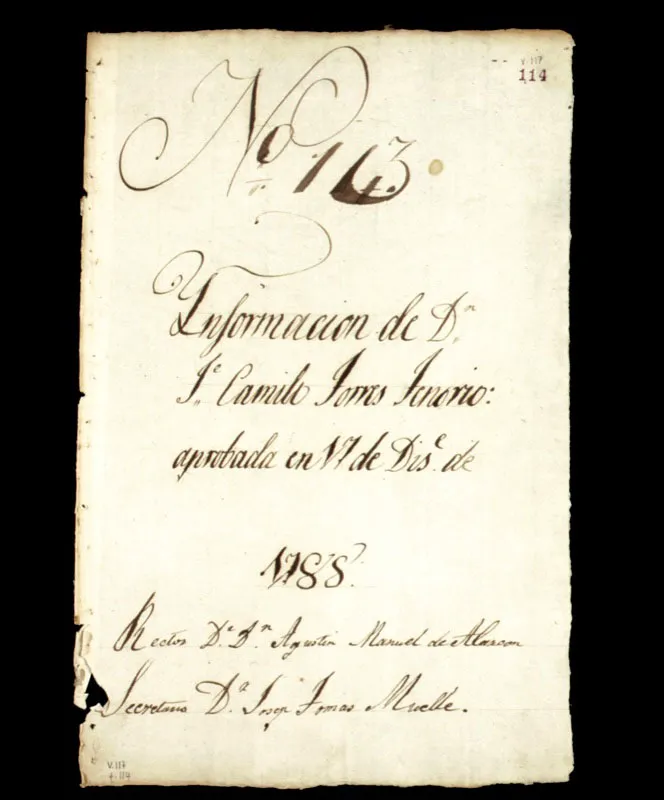 v.117
114
Nº 143
Informacion de Dⁿ
Jᵉ Camilo Torres Tenorio:
aprobada en 17 de Disᵉ. de
1788.
Rector Dᵉ. Dⁿ Agustin Manuel de Alarcon
Secretario Dⁿ Josep Tomas Muelle.
V.117
f. 114